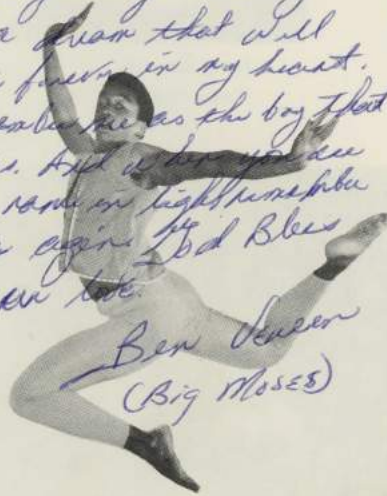 dream that will
in my heart.
me as the boy that
. And when you see
name in light
again. God Bless
love.
Ben Vereen
(Big Moses)